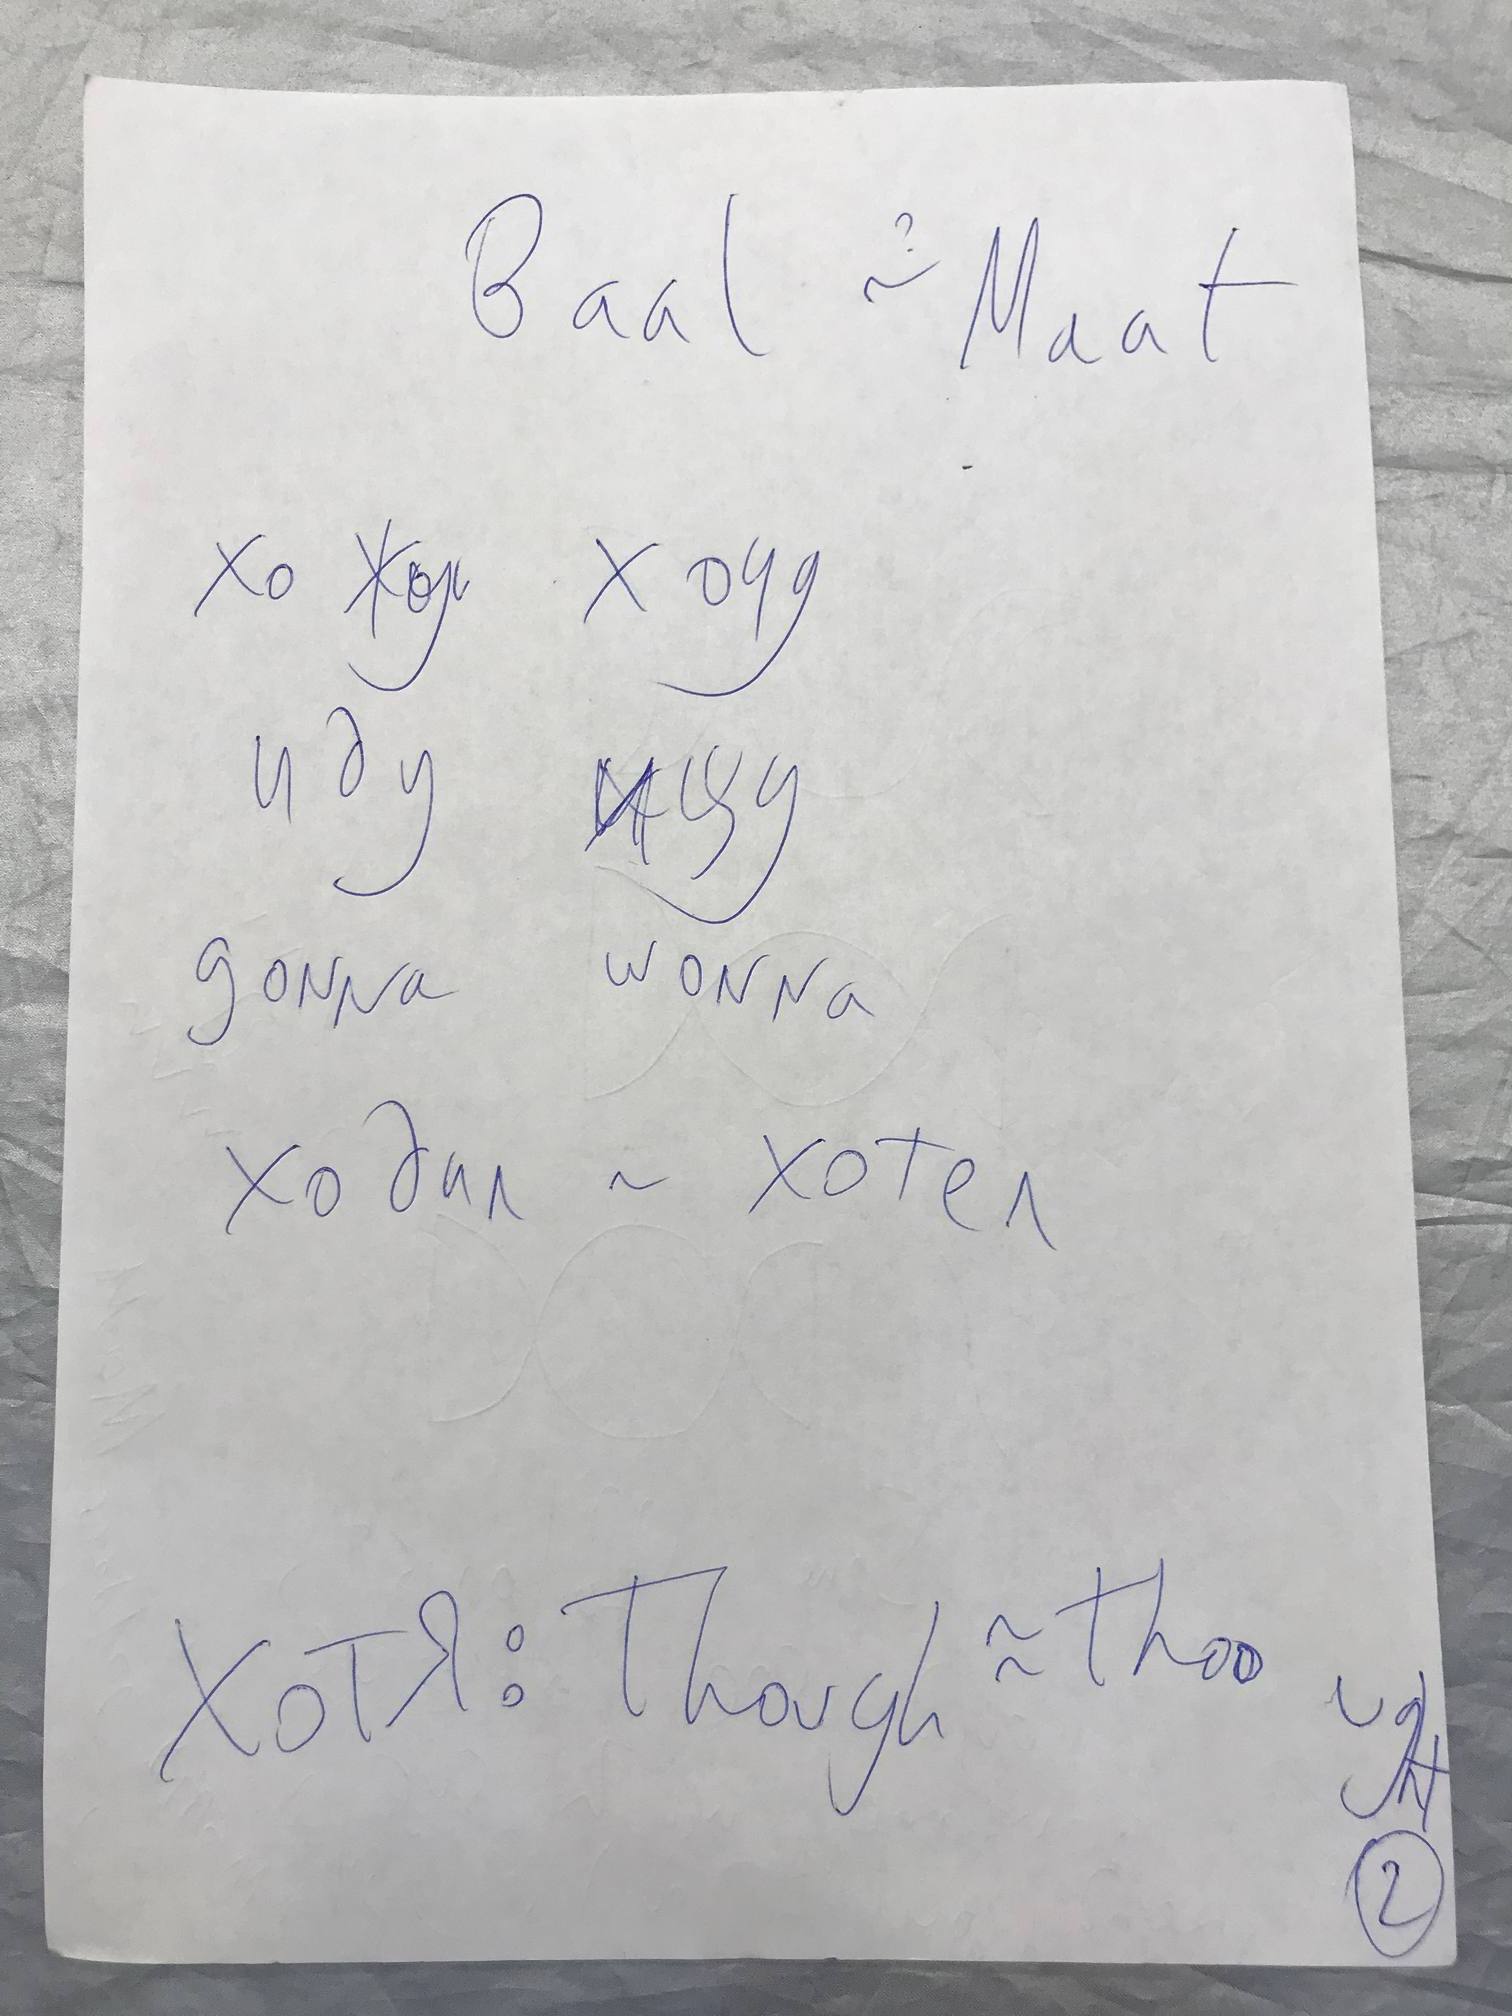 Baal ~? Maat
хожу хочу
иду ищу
gonna wonna
ходил ~ хотел
ХОТЯ: Though ≈ thoo
ught
2